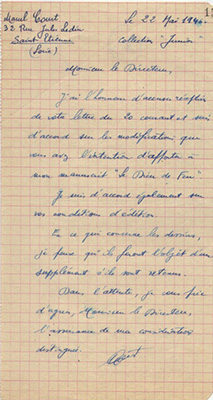 Marcel Court
32 Rue Jules Ledin
Saint-Etienne
(Loire)
Le 22 Mai 194
Collection "Junior"
Monsieur le Directeur,
J'ai l'honneur d'accuser réception
de votre lettre du 20 courant et suis
d'accord sur les modifications que
vous avez l'intention d'apporter à
mon manuscrit "Le Dieu de Feu".
Je suis d'accord également sur
vos conditions d'édition.
En ce qui concerne les dessins,
je pense qu'ils feront l'objet d'un
supplément s'ils sont retenus.
Dans l'attente, je vous prie
d'agréer, Monsieur le Directeur,
l'assurance de ma considération
distinguée.